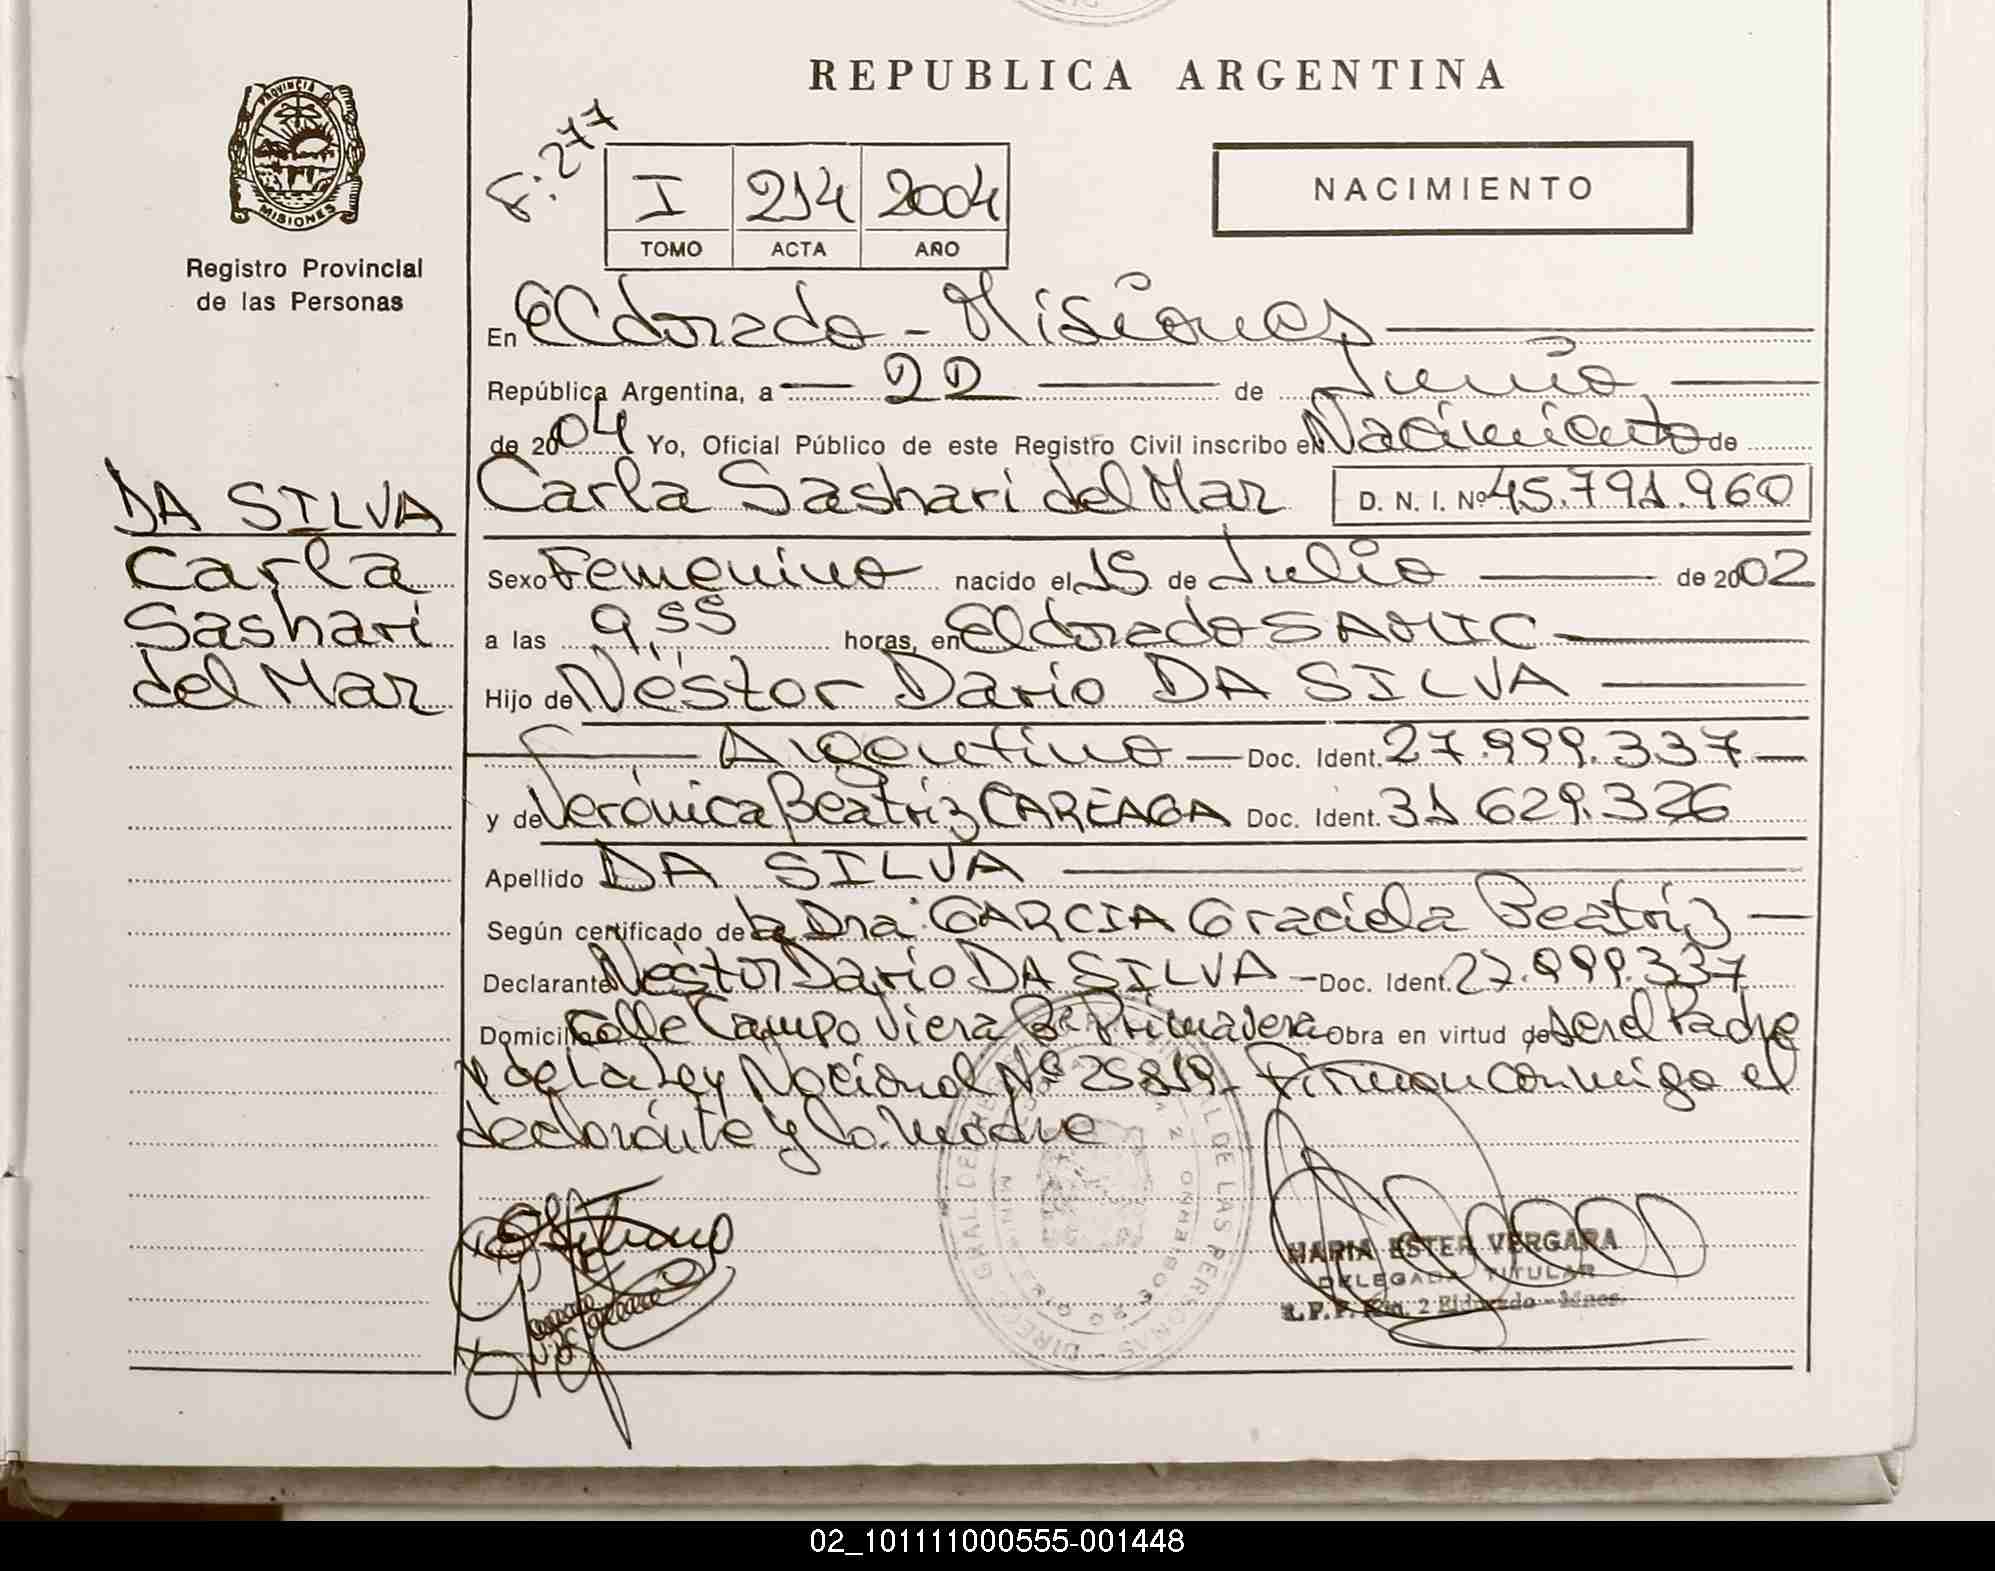 REPUBLICA ARGENTINA
PROVINCIA D
MISIONES
Registro Provincial
de las Personas
F: 277
I 214 2004
TOMO ACTA AÑO
NACIMIENTO
En Eldorado - Misiones
República Argentina, a 22 de Junio
de 2004 Yo, Oficial Público de este Registro Civil inscribo el Nacimiento de
Carla Sashari del Mar D. N. I. Nº 45.791.960
DA SILVA
Carla
Sashari
del Mar
Sexo Femenino nacido el 15 de Julio de 2002
a las 9,55 horas, en Eldorado SAMIC
Hijo de Néstor Dario DA SILVA
Argentino Doc. Ident. 27.999.337
y de Verónica Beatriz CAREAGA Doc. Ident. 31 629.326
Apellido DA SILVA
Según certificado de la Dra. GARCIA Graciela Beatriz
Declarante Nestor Dario DA SILVA - Doc. Ident. 27.999.337
Domicilio Calle Campo Viera Bº Primavera Obra en virtud de ser el Padre
y de La Ley Nacional Nº 25819. Firman conmigo el
declarante y la madre
MARIA ESTER VERGARA
DELEGADA TITULAR
R.P.P. 2 Eldorado - Mnes.
02_101111000555-001448